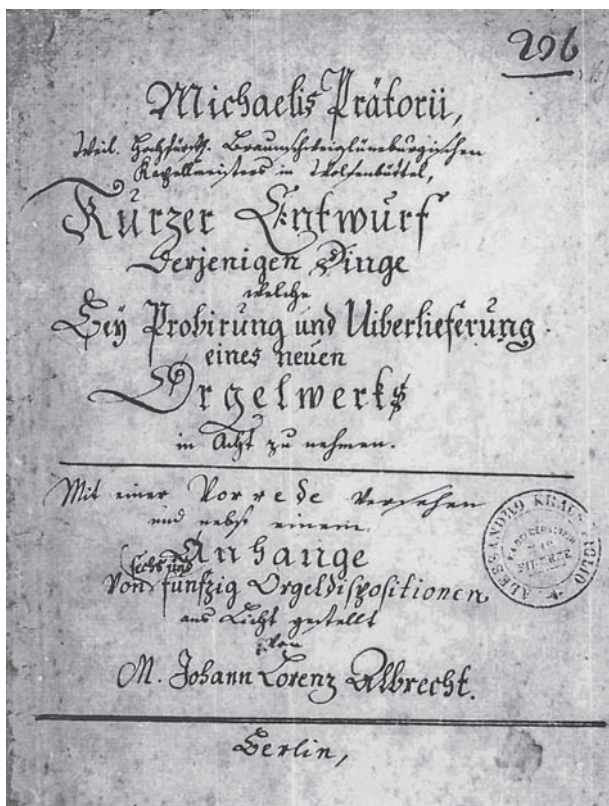 296
Michaelis Prätorii,
Weil. Hochfürstl. Braunschweiglüneburgischen
Kapellmeisters in Wolfenbüttel,
Kurzer Entwurf
derjenigen Dinge
welche
Bey Probirung und Uiberlieferung
eines neuen
Orgelwerks
in Acht zu nehmen.
Mit einer Vorrede versehen
und nebst einem
Anhange
sechs und
Von funfzig Orgeldispositionen
ans Licht gestellt
von
M. Johann Lorenz Albrecht.
ALESSANDRO KRAUS FIGLIO
FIRENZE
Berlin,